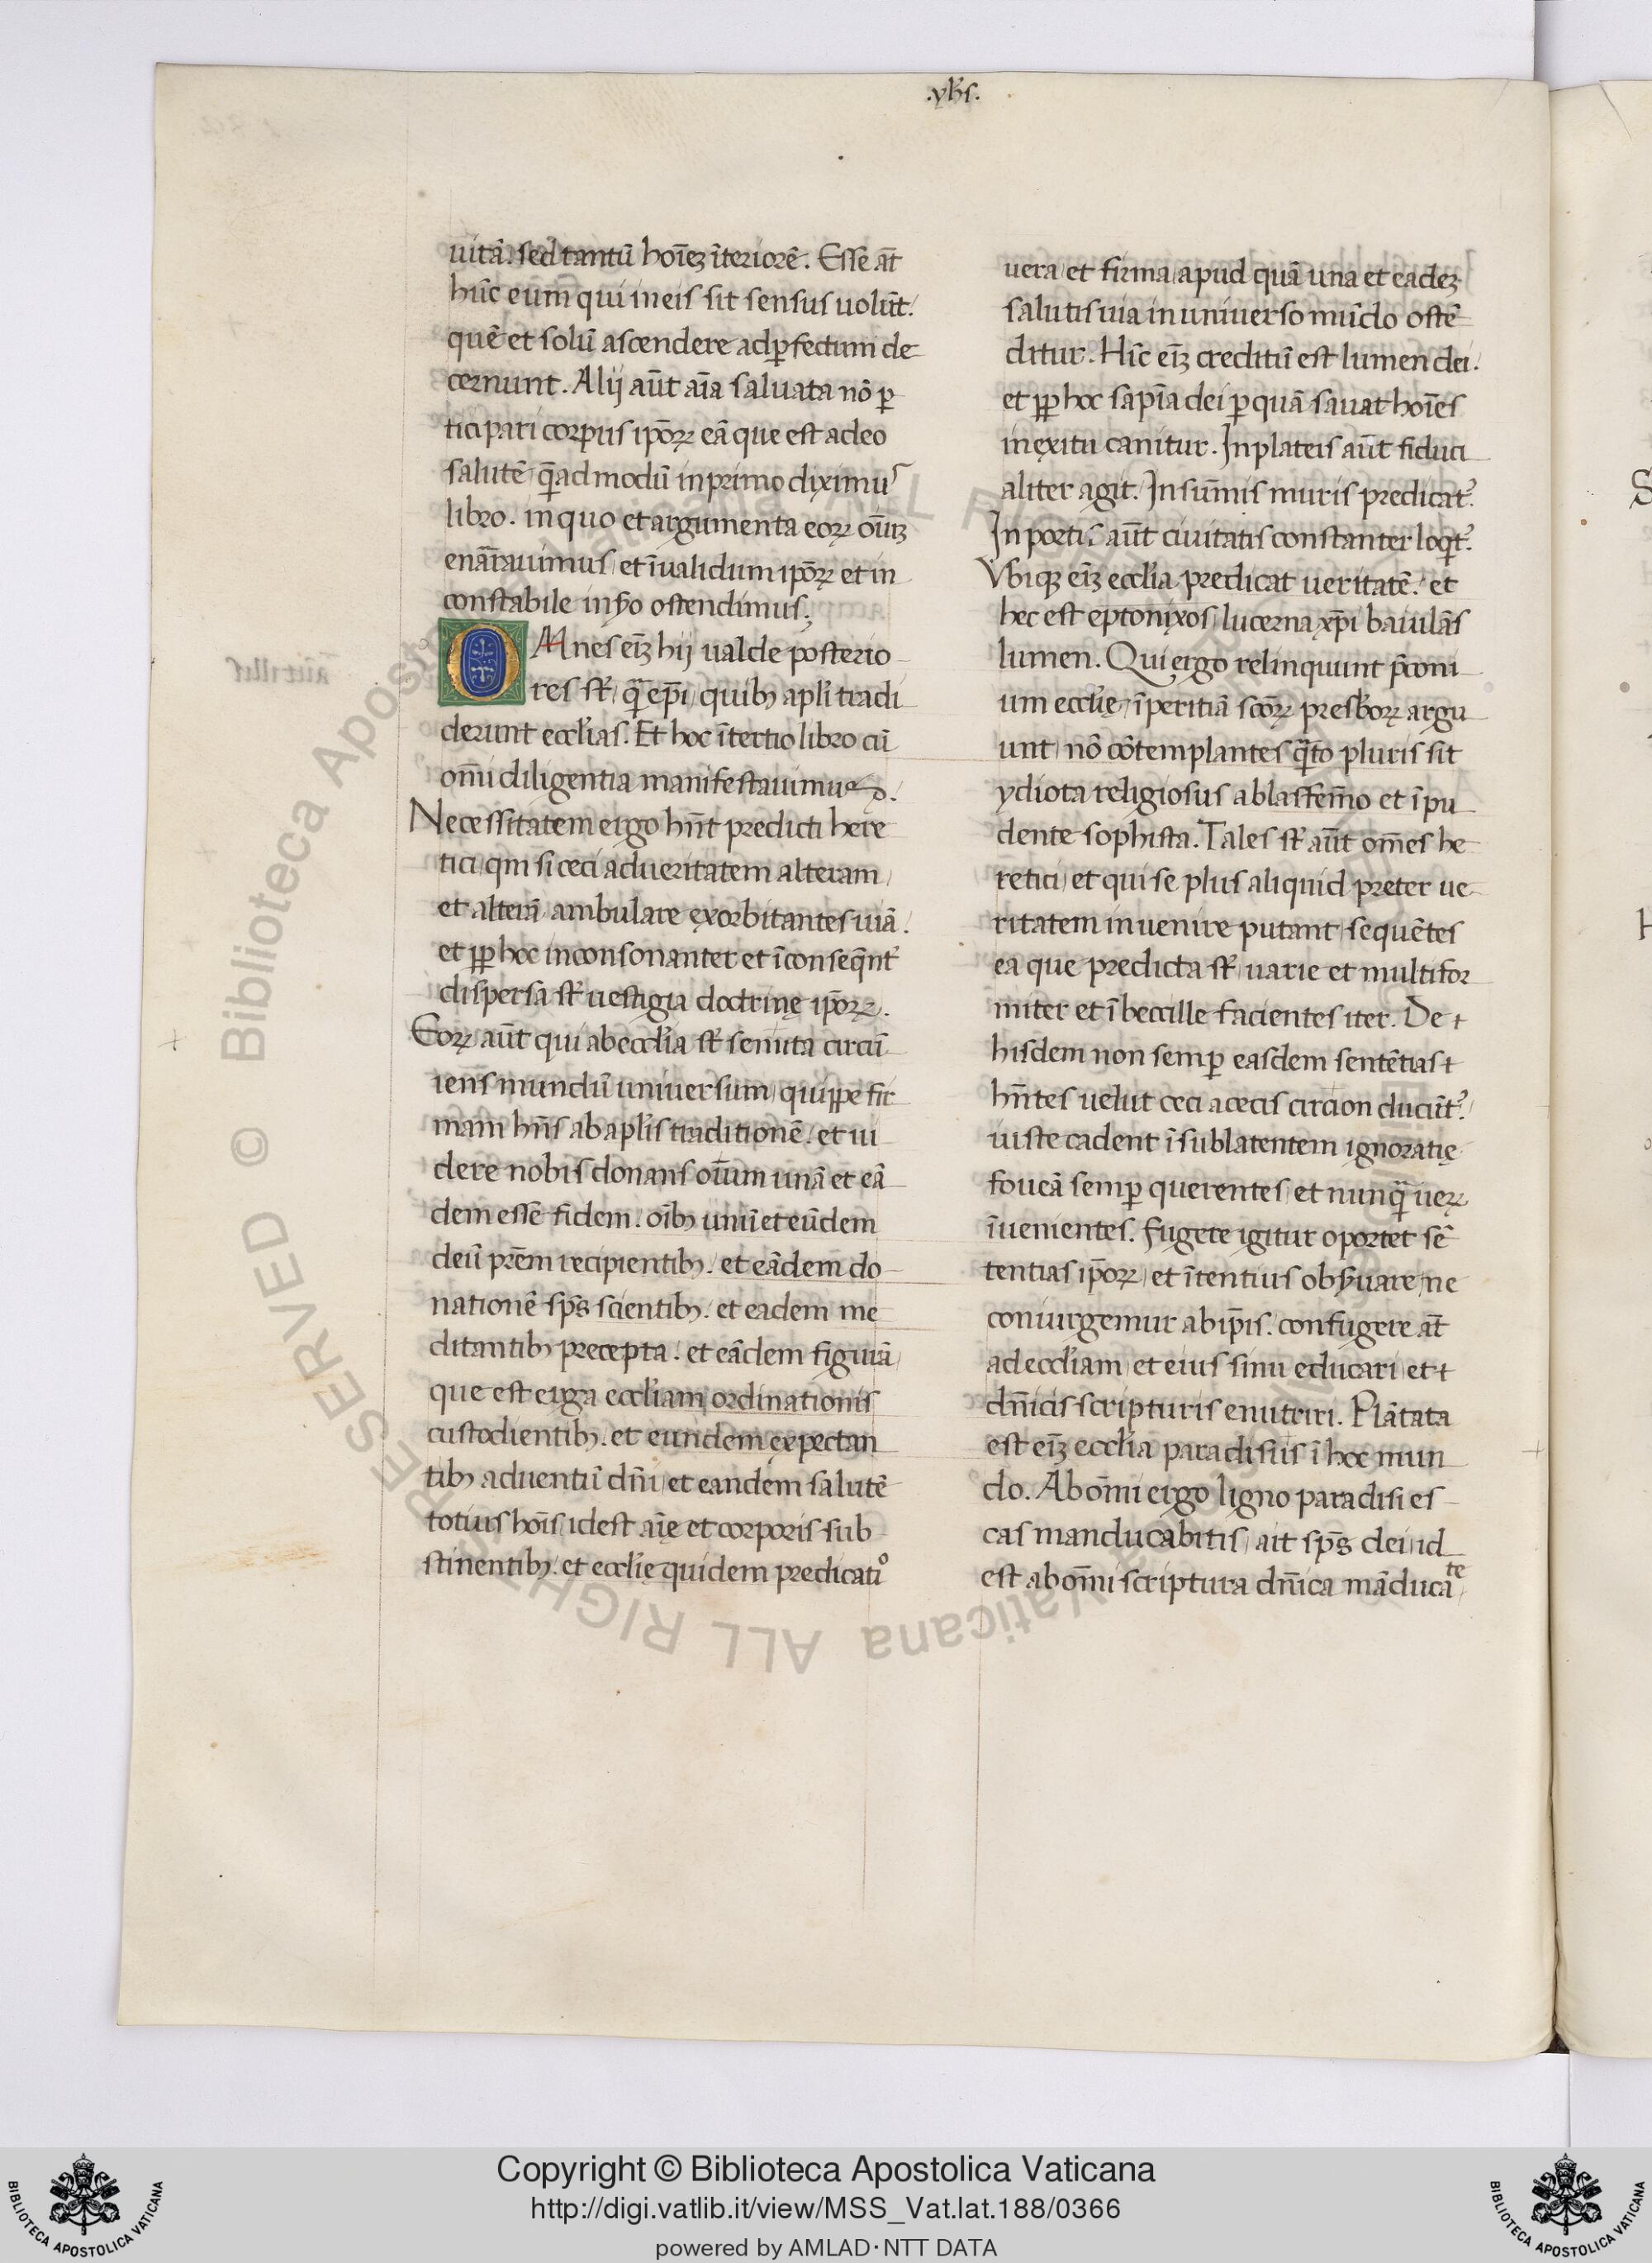 .yħs.
uitā. sed tantū hoīeꝫ īteriorē. Essē aȳt
hūc eum qui in eis sit sensus uolūt.
quē et solū ascendere ad ꝑfectum de
cernunt. Alij aūt aīa saluata nō ꝑ
ticipari corpus ipōꝝ eā que est a deo
salutē q̄ad modū in primo diximus
libro. in quo et argumenta eoꝝ oīuꝫ
enārrauimus et īualidum ipōꝝ et in
constabile in yō ostendimus;
OMnes eīꝫ hij ualde posterio
res st̄ q̄ epī quibꝫ apl̄i tradi
derunt eccl̄ias. Et hoc ī tertio libro cū
om̄i diligentia manifestauimus.
Necessitatem ergo hn̄t predicti here
tici qm̄ si ceci ad ueritatem alteram
et alterā ambulare exorbitantes uiā.
et ꝓp hoc inconsonanter et īconseq̄nt᷒
dispersa st̄ uestigia doctrinę ipōꝝ.
Eoꝝ aūt qui ab eccl̄ia st̄ semita circū
iens mundū uniuersum quippe fir
mam hn̄s ab apl̄is traditionē. et ui
dere nobis donans oīum unā et eā
dem essē fidem. oībꝫ unū et eūdem
deū prēm recipientibꝫ. et eādem do
nationē sp̄s scientibꝫ. et eadem me
ditantibꝫ precepta. et eādem figurā
que est erga eccl̄iam ordinationis
custodientibꝫ. et eundem expectan
tibꝫ aduentū dn̄i et eandem salutē
totius hoīs id est aīę et corporis sub
stinentibꝫ. et eccl̄ię quidem predicatio
uera et firma apud quā una et eadeꝫ
salutis uia in uniuerso mūdo ostē
ditur. Hīc eīꝫ creditū est lumen dei.
et ꝓp hoc sapīa dei ꝑ quā sauat hoīes
in exitu canitur. In plateis aūt fiduci
aliter agit. In sūmis muris predicat᷒.
In portis aūt ciuitatis constanter loq̄t᷒.
Vbiqꝫ eīꝫ eccl̄ia predicat ueritatē. et
hec est eptonixos lucerna xp̄i baiulās
lumen. Qui ergo relinquunt p̄coni
um eccl̄ię īperitiā scōꝝ presb̄oꝝ argu
unt nō cōtemplantes q̄to pluris sit
ydiota religiosus a blasfemo et īpu
dente sophista. Tales st̄ aūt om̄es he
retici et qui se plus aliquid preter ue
ritatem inuenire putant sequētes
ea que predicta st̄ uarie et multifor
miter et ībecille facientes iter. De
hisdem non semꝑ easdem sentētias
hn̄tes uelut ceci a cecis circion ducūt᷒.
iuste cadent ī sublatentem ignoratię
foueā semꝑ querentes et nunq̄ ueꝝ
īuenientes. fugere igitur oportet sē
tentias ipōꝝ et ītentius obsȳuare ne
coniurgemur ab ip̄is. confugere aȳt
ad eccl̄iam et eius sinu educari et
dn̄icis scripturis enutriri. Plātata
est eīꝫ eccl̄ia paradisus ī hoc mun
do. Ab om̄i ergo ligno paradisi es
cas manducabitis ait sp̄s dei id
est ab om̄i scriptura dn̄ica māducate
Copyright © Biblioteca Apostolica Vaticana
http://digi.vatlib.it/view/MSS_Vat.lat.188/0366
powered by AMLAD·NTT DATA
BIBLIOTECA APOSTOLICA VATICANA
BIBLIOTECA APOSTOLICA VATICANA